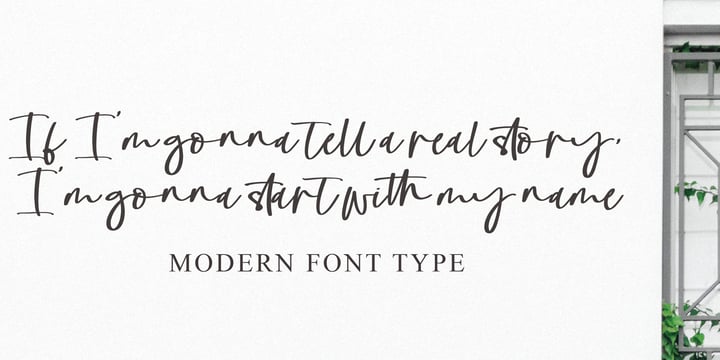 If I'm gonna tell a real story,
I'm gonna start with my name
MODERN FONT TYPE